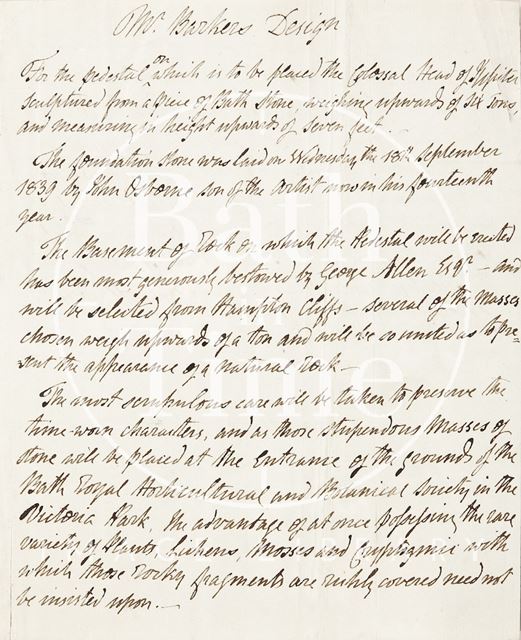 Mr Barkers Design
For the pedestal on which is to be placed the Colossal Head of Jupiter
sculptured from a Piece of Bath Stone, weighing upwards of Six Tons,
and measuring in height upwards of seven feet
The foundation stone was laid on Wednesday the 18th September
1839 by John Osborne son of the Artist now in his fourteenth
year.
The Basement of Rock on which the Pedestal will be erected
has been most generously bestowed by George Allen Esqr. - and
will be selected from Hampton Cliffs - several of the masses
chosen weigh upwards of a ton and will be so united as to pre=
sent the appearance of a natural Rock -
The most scrupulous care will be taken to preserve the
time-worn characters, and as those stupendous Masses of
stone will be placed at the Entrance of the grounds of the
Bath Royal Horticultural and Botanical Society in the
Victoria Park, the advantage of at once possessing the rare
variety of Plants, Lichens, Mosses and with
which those Rocky fragments are richly covered need not
be insisted upon. -
Bath
in
Time